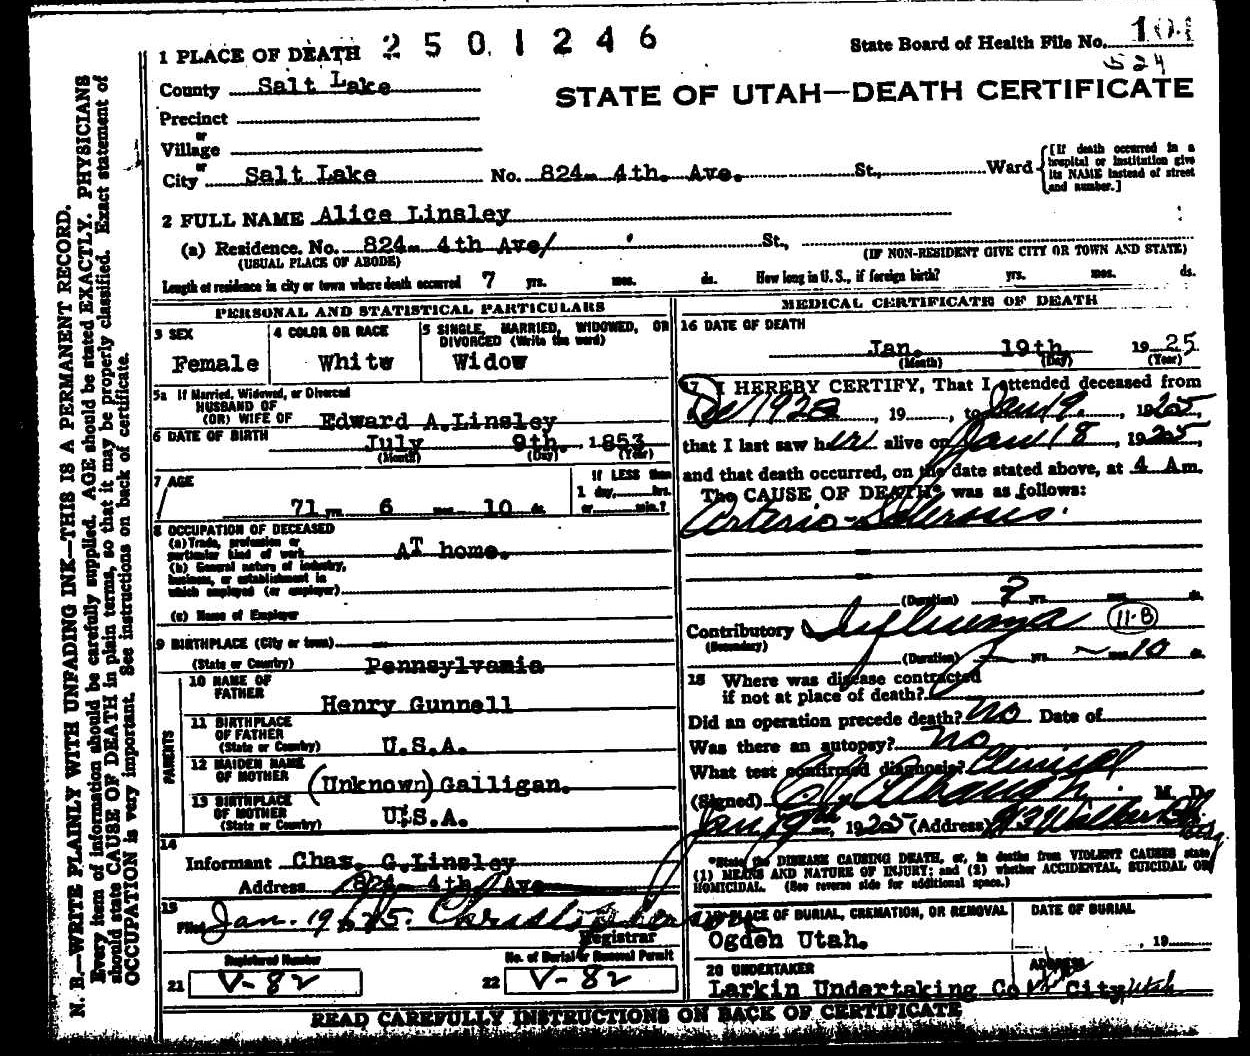 1 PLACE OF DEATH 2501246
State Board of Health File No. 101
524
County Salt Lake
STATE OF UTAH—DEATH CERTIFICATE
Precinct
or
Village
or
City Salt Lake No. 824 4th. Ave. St., Ward
[If death occurred in a
hospital or institution give
its NAME instead of street
and number.]
2 FULL NAME Alice Linsley
(a) Residence. No. 824 4th Ave/ St.,
(USUAL PLACE OF ABODE) (IF NON-RESIDENT GIVE CITY OR TOWN AND STATE)
Length of residence in city or town where death occurred 7 yrs. mos. ds. How long in U. S., if foreign birth? yrs. mos. ds.
PERSONAL AND STATISTICAL PARTICULARS
3 SEX
Female
4 COLOR OR RACE
White
5 SINGLE, MARRIED, WIDOWED, OR
DIVORCED (Write the word)
Widow
5a If Married, Widowed, or Divorced
HUSBAND OF
(OR) WIFE OF Edward A.Linsley
6 DATE OF BIRTH
July 9th. 1853
(Month) (Day) (Year)
7 AGE
71 yrs 6 mos 10 ds.
If LESS than
1 day, hrs.
or min.?
8 OCCUPATION OF DECEASED
(a) Trade, profession or
particular kind of work AT home.
(b) General nature of industry,
business, or establishment in
which employed (or employer)
(c) Name of Employer
9 BIRTHPLACE (City or town)
(State or Country) Pennsylvania
PARENTS
10 NAME OF
FATHER
Henry Gunnell
11 BIRTHPLACE
OF FATHER
(State or Country) U.S.A.
12 MAIDEN NAME
OF MOTHER (Unknown) Galligan.
13 BIRTHPLACE
OF MOTHER
(State or Country) U.S.A.
14
Informant Chas. G.Linsley
Address 824 4th Ave
15
Filed Jan. 19
Registrar
Registered Number
21 V-82
No. of Burial or Removal Permit
22 V-82
MEDICAL CERTIFICATE OF DEATH
16 DATE OF DEATH
Jan. 19th. 1925
(Month) (Day) (Year)
17 I HEREBY CERTIFY, That I attended deceased from
Dec 1922, 19, to Jan 19, 1925,
that I last saw her alive on Jan 18, 1925,
and that death occurred, on the date stated above, at 4 A m.
The CAUSE OF DEATH* was as follows:
Arterio-Sclerosis.
(Duration) ? yrs. mos. ds.
Contributory Influenza 11-B
(Secondary)
(Duration) yrs. mos. 10 ds.
18 Where was disease contracted
if not at place of death?
Did an operation precede death? No Date of
Was there an autopsy? No
What test confirmed diagnosis? Clinical
(Signed) M D
Jan 19th, 1925 (Address)
*State the DISEASE CAUSING DEATH, or, in deaths from VIOLENT CAUSES state
(1) MEANS AND NATURE OF INJURY; and (2) whether ACCIDENTAL, SUICIDAL OR
HOMICIDAL. (See reverse side for additional space.)
19 PLACE OF BURIAL, CREMATION, OR REMOVAL
Ogden Utah.
DATE OF BURIAL
, 19
20 UNDERTAKER
Larkin Undertaking Co
ADDRESS
City, Utah
READ CAREFULLY INSTRUCTIONS ON BACK OF CERTIFICATE
N. B.—WRITE PLAINLY WITH UNFADING INK—THIS IS A PERMANENT RECORD.
Every item of information should be carefully supplied. AGE should be stated EXACTLY. PHYSICIANS
should state CAUSE OF DEATH in plain terms, so that it may be properly classified. Exact statement of
OCCUPATION is very important. See instructions on back of certificate.